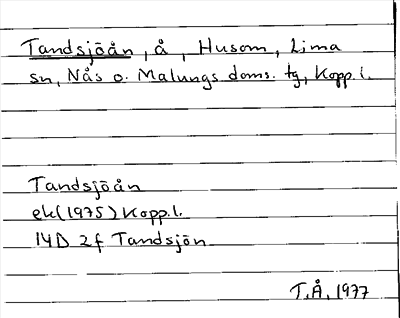 Tandsjöån, å, Husom, Lima
sn, Nås o. Malungs doms. tg, Kopp. l.
Tandsjöån
ek (1975) Kopp. l.
14D 2f Tandsjön
T.Å. 1977